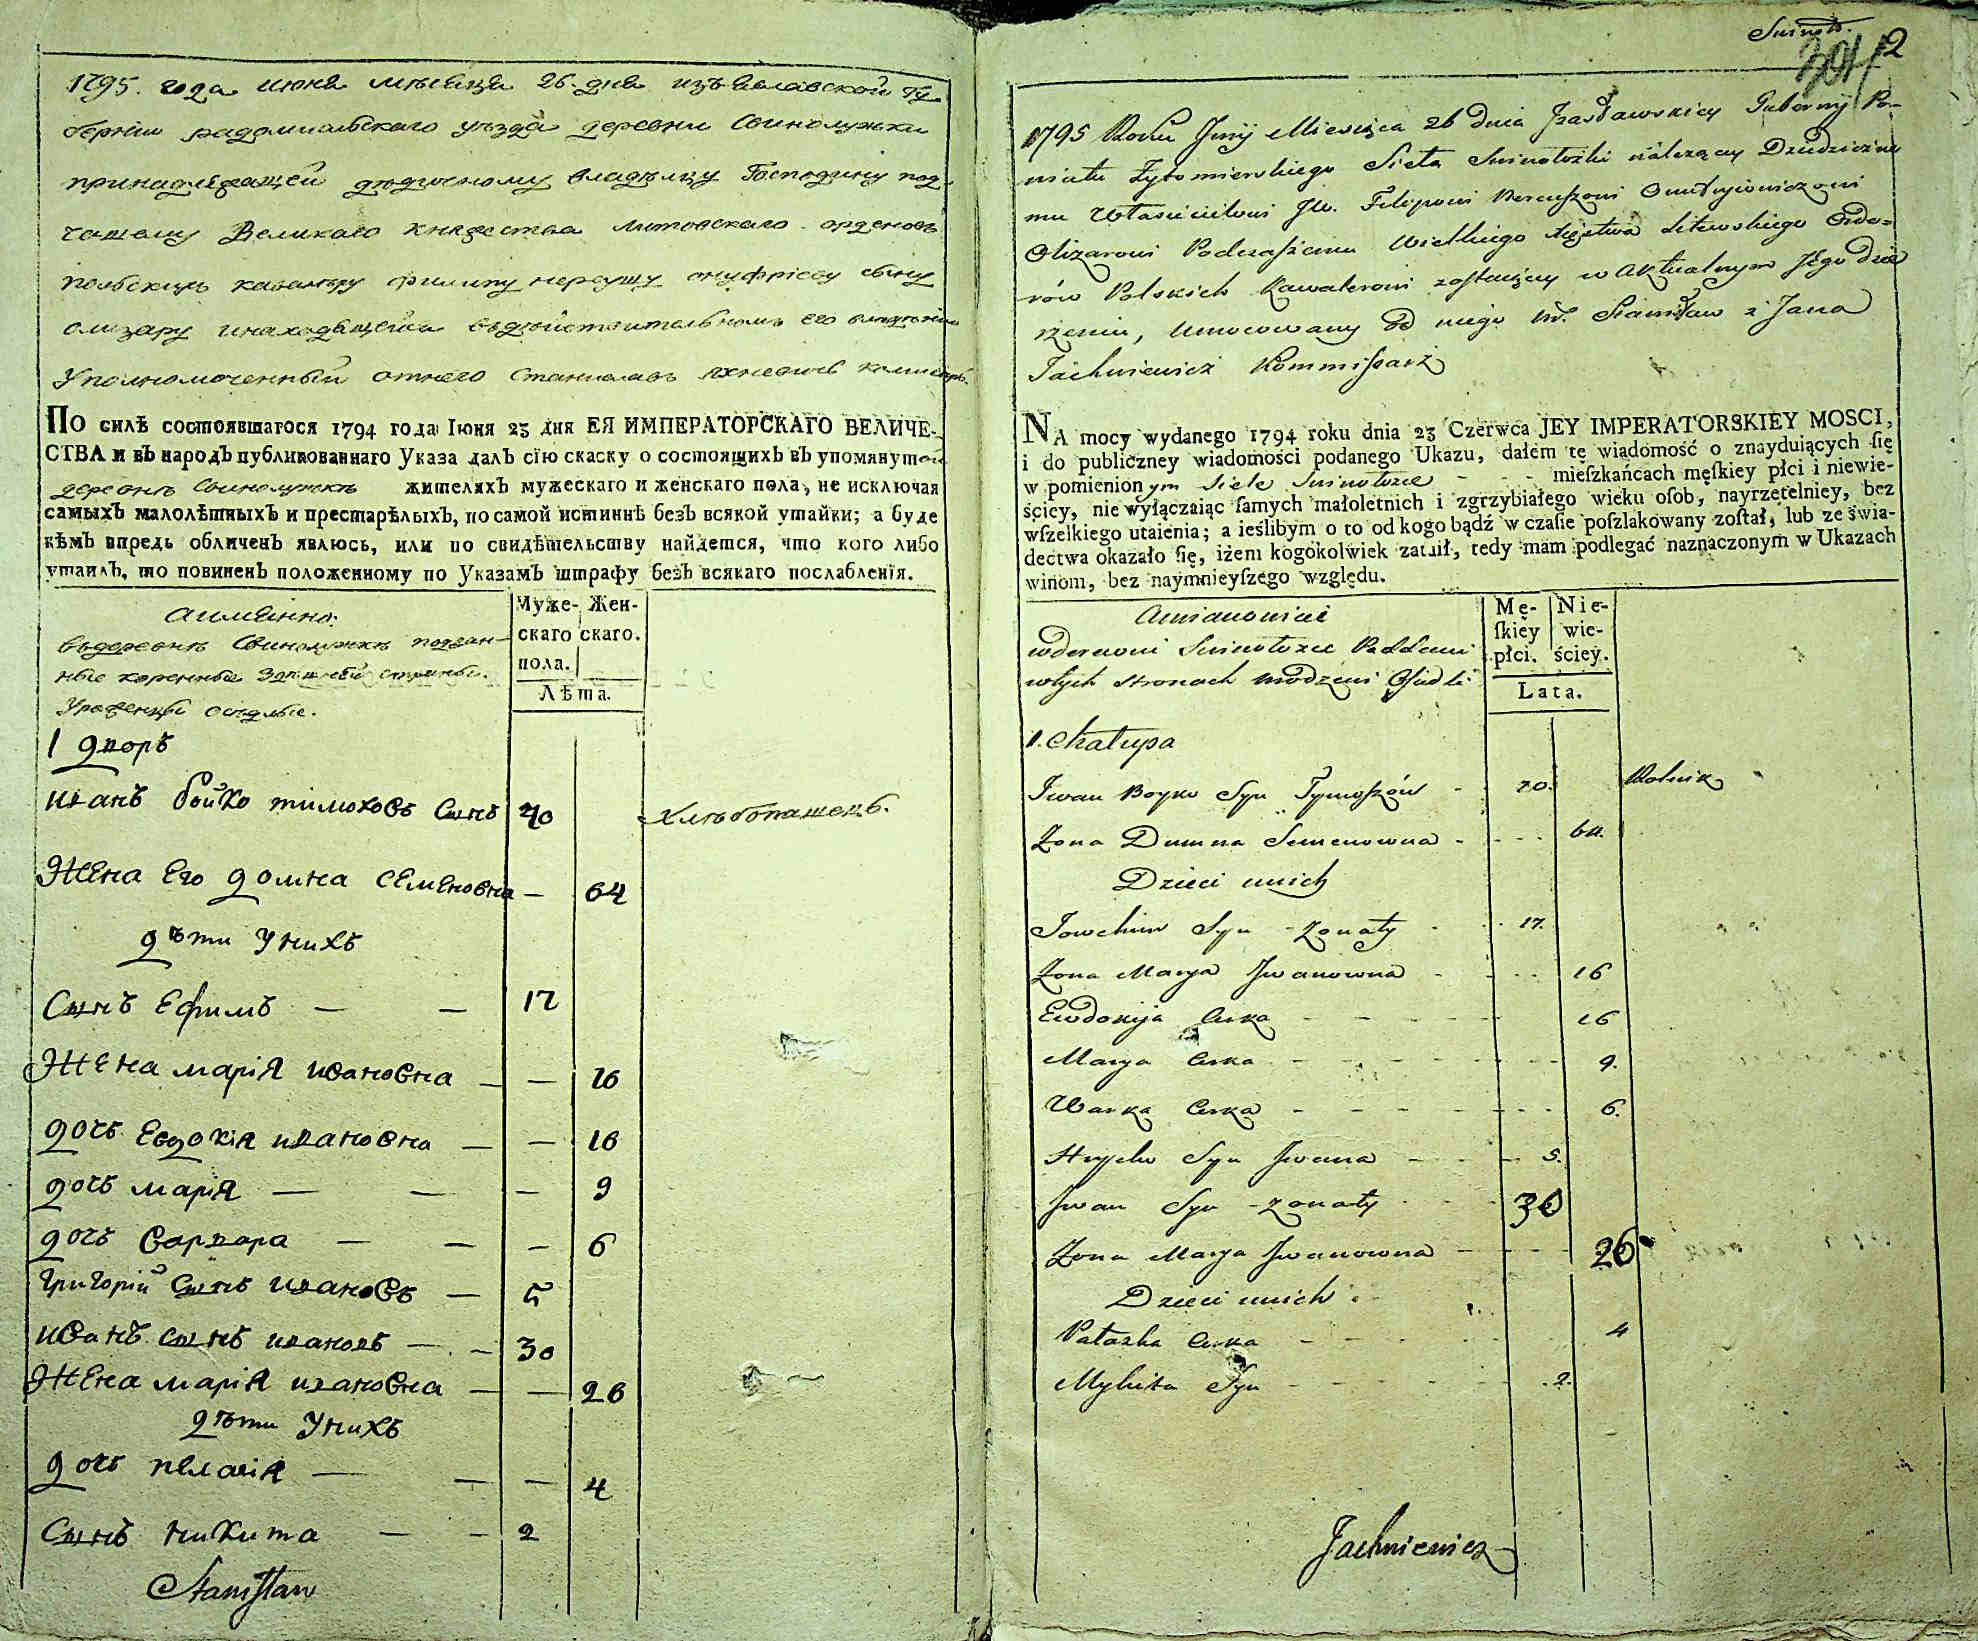 1795. года июня мѣсяца 26. дня изъ Изяславской гу
берніи радомисльского уѣзда деревни Свинолужки
принадлежащей дѣдичному владѣлцу Господину под
чашему Великаго княжества литовскаго орденовъ
полскихъ кавалѣру филипу нереушу онуфріеву сыну
олизару инаходящейся вдѣйствительномъ его владѣніи
Уполномоченный отнего станиславъ яхневичъ комисаръ
ПО силѣ состоявшагося 1794 года Іюня 23 дня ЕЯ ИМПЕРАТОРСКАГО ВЕЛИЧЕ-
СТВА и въ народъ публикованнаго Указа далъ сїю скаску о состоящихъ въ упомянутой
деревнѣ Свинолужкѣ жителяхъ мужескаго и женскаго пола, не исключая
самыхъ малолѣтныхъ и престарѣлыхъ, по самой истиннѣ безъ всякой утайки; а буде
кѣмъ впредь обличенъ явлюсь, или по свидѣтельству найдется, что кого либо
утаилъ, то повиненъ положенному по Указамъ штрафу безъ всякаго послабленїя.
аимянно:
вдеревнѣ Свинолужкѣ поддан-
ные коренные здешней страны
Уроженцы оседлые.
Муже- Жен-
скаго скаго.
пола.
Лѣта.
1 дворъ
иванъ бойко тимоховъ сынъ 70 хлѣбопашецъ.
Жена Его домна семеновна — 64
дѣти Унихъ
Сынъ Ефимъ — — 17
Жена марія ивановна — — 16
дочь Евдокія ивановна — — 16
дочь марія — — — 9
дочь варвара — — — 6
григорій сынъ ивановъ — 5
иванъ сынъ ивановъ — — 30
Жена марія ивановна — — 26
дѣти Унихъ
дочь пелагія — — — 4
Сынъ никита — — 2
Stanisław
Swinoł.
301 2
1795 Roku Junij Miesiąca 26 dnia Izasławskiey Guberny Po-
wiatu Żytomierskiego Sieła Swinołożki należący Dziedziczne
mu Właścicielowi JW. Filipowi Nereuszowi Onufryiowiczowi
Olizarowi Podczaszemu Wielkiego Xięstwa Litewskiego Orde-
rów Polskich Kawalerowi zostaiący w Aktualnym Jego dzie
rżeniu, Umocowany Od niego W. Stanisław z Jana
Jachniewicz Kommissarz
NA mocy wydanego 1794 roku dnia 23 Czerwca JEY IMPERATORSKIEY MOSCI,
i do publiczney wiadomości podanego Ukazu, dałem tę wiadomość o znayduiących ſię
w pomienionym Siele Swinołożce - - - mieſzkańcach męſkiey płci i niewie-
ściey, nie wyłączaiąc ſamych małoletnich i zgrzybiałego wieku oſob, nayrzetelniey, bez
wſzelkiego utaienia; a ieślibym o to od kogo bądź w czaſie poſzlakowany zoſtał, lub ze świa-
dectwa okazało ſię, iżem kogokolwiek zataił, tedy mam podlegać naznaczonym w Ukazach
winom, bez naymnieyſzego względu.
Amianowicie
wderewni Swinołożce Poddani
wtych stronach urodzeni Osiadli
Mę- Nie-
ſkiey wie-
płci. ściey.
Lata.
1. Chałupa
Iwan Boyko Syn Tymoszów - 70. Rolnik
Żona Dumna Semenowna - - - - 64.
Dzieci unich
Jowchim Syn - żonaty - - 17.
Żona Marya Iwanowna - - - - 16
Ewdokija Curka - - - - - 16
Marya Curka - - - - - - 9.
Warka Curka - - - - - - 6.
Hryćko Syn Iwana - - - - 5.
Iwan Syn - żonaty - - - 30
Żona Marya Iwanowna - - - - 26
Dzieci unich
Pałazka Curka - - - - 4
Mykita Syn - - - - - 2.
Jachniewicz